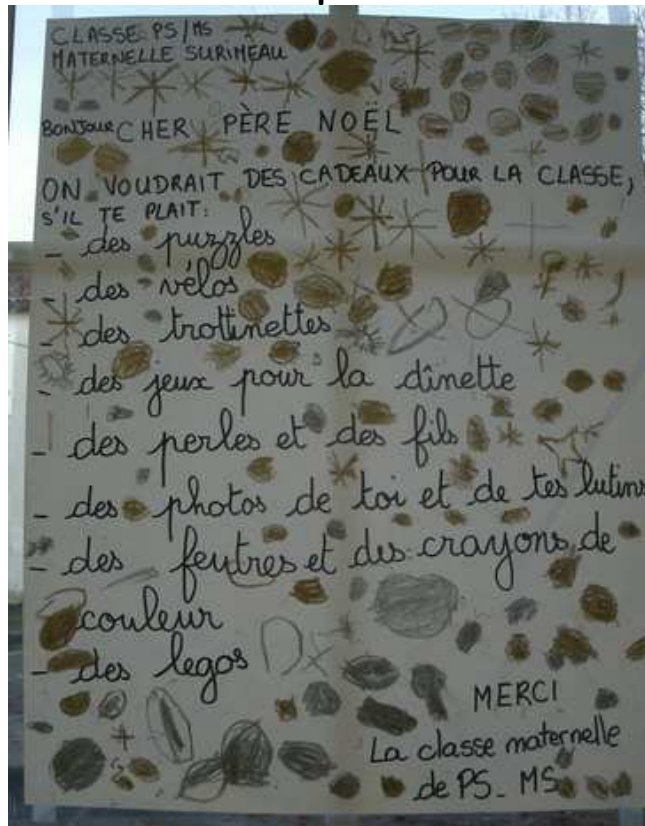 CLASSE PS/MS
MATERNELLE SURIMEAU
BONJOUR CHER PÈRE NOËL
ON VOUDRAIT DES CADEAUX POUR LA CLASSE,
S'IL TE PLAIT:
- des puzzles
- des vélos
- des trottinettes
- des jeux pour la dînette
- des perles et des fils
- des photos de toi et de tes lutins
- des feutres et des crayons de
couleur
- des legos
MERCI
La classe maternelle
de PS_MS